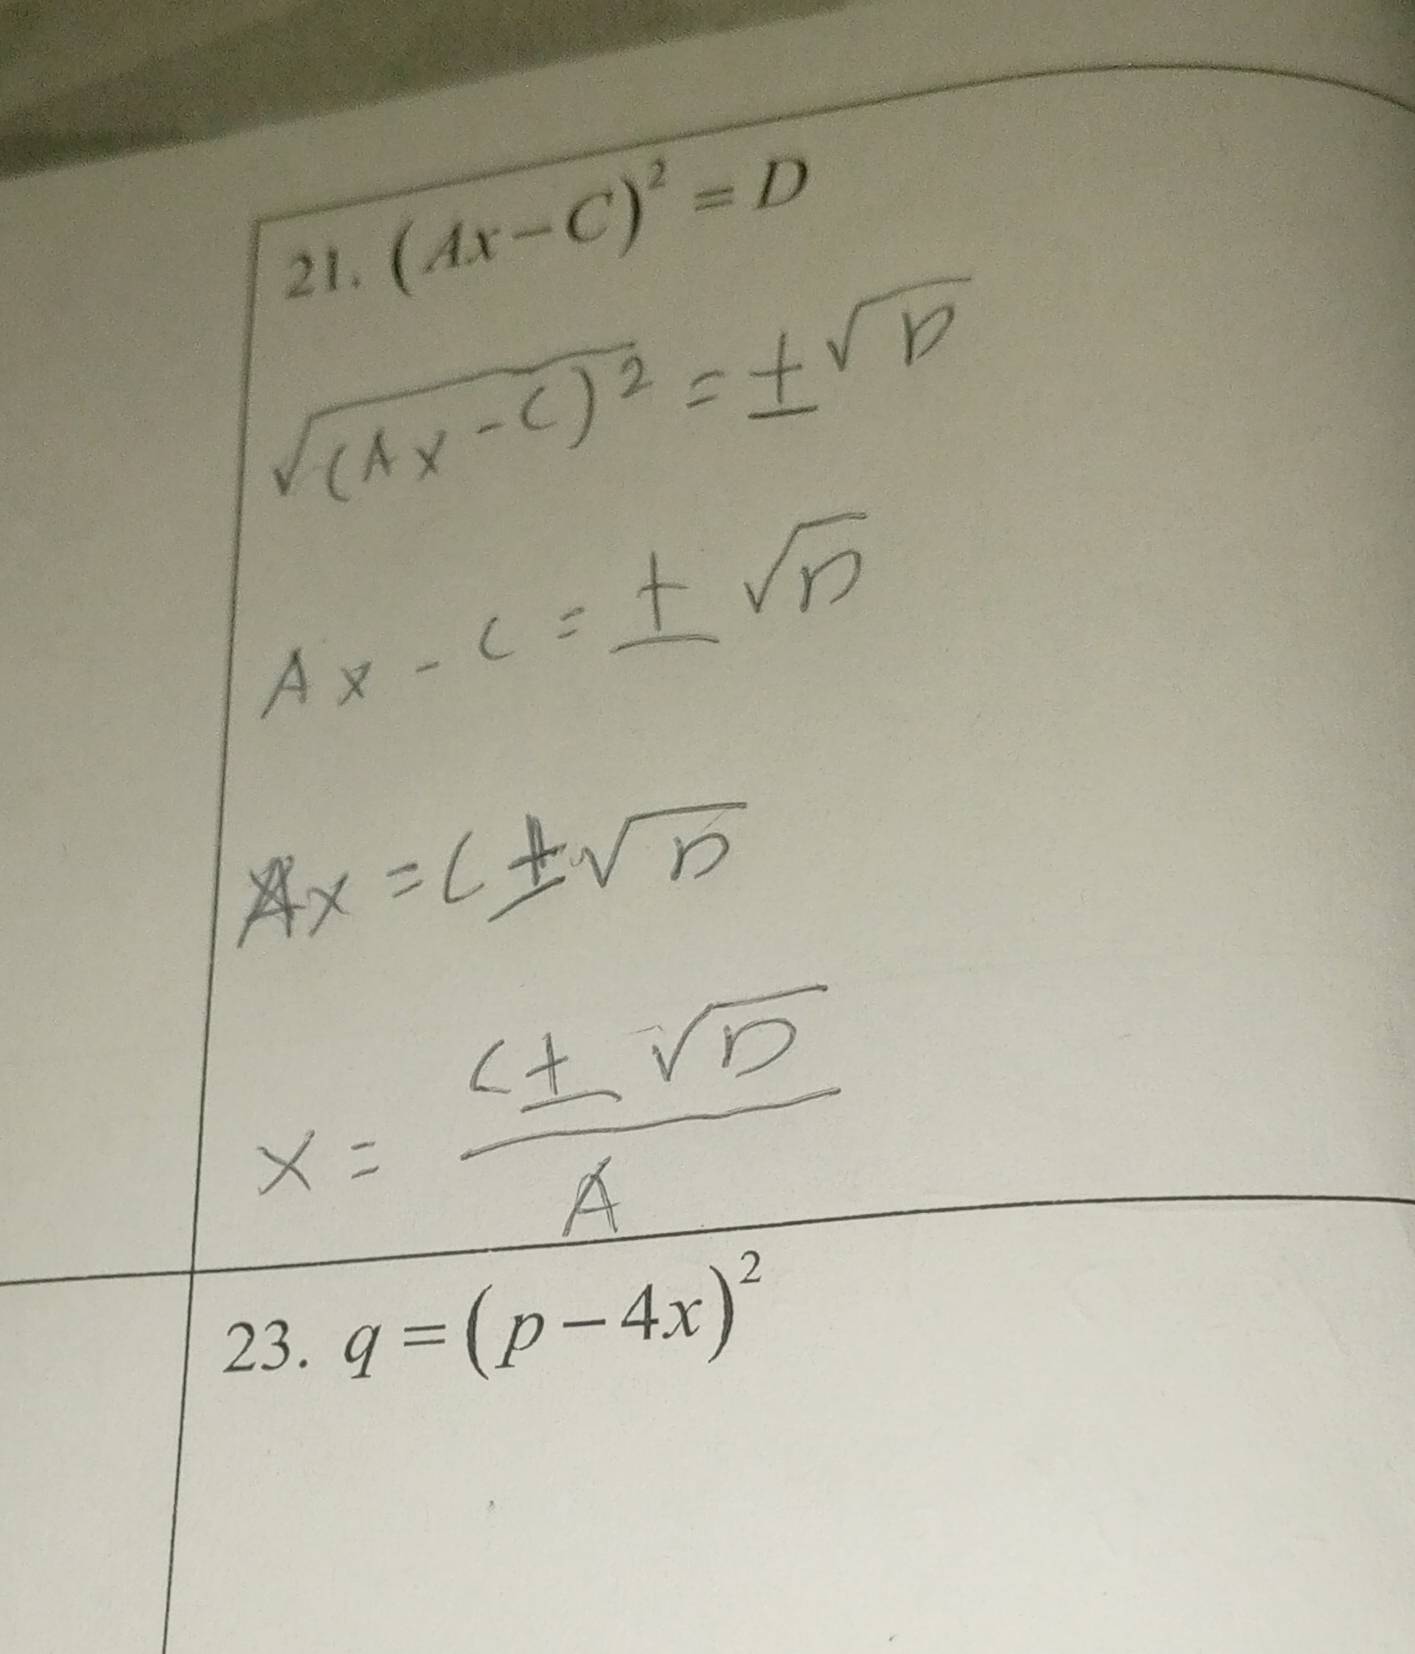 21. (Ax-C)² = D
√(Ax-C)² = ± √D
Ax - C = ± √D
Ax = C ± √D
x = C ± √D / A
23. q = (p-4x)²